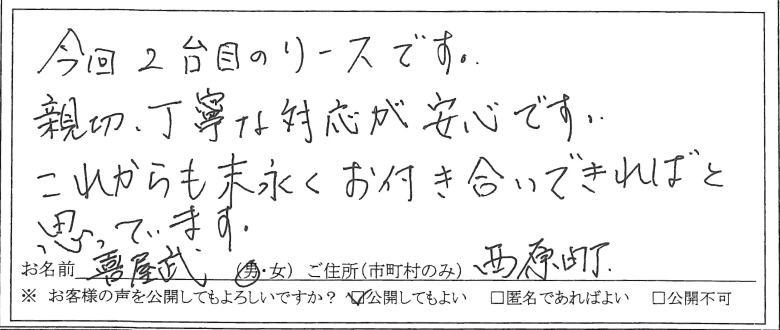 今回2台目のリースです。
親切、丁寧な対応が安心です。
これからも末永くお付き合いできればと
思っています。
お名前 喜屋武 (男・女) ご住所(市町村のみ) 西原町
※ お客様の声を公開してもよろしいですか? ☑公開してもよい □匿名であればよい □公開不可